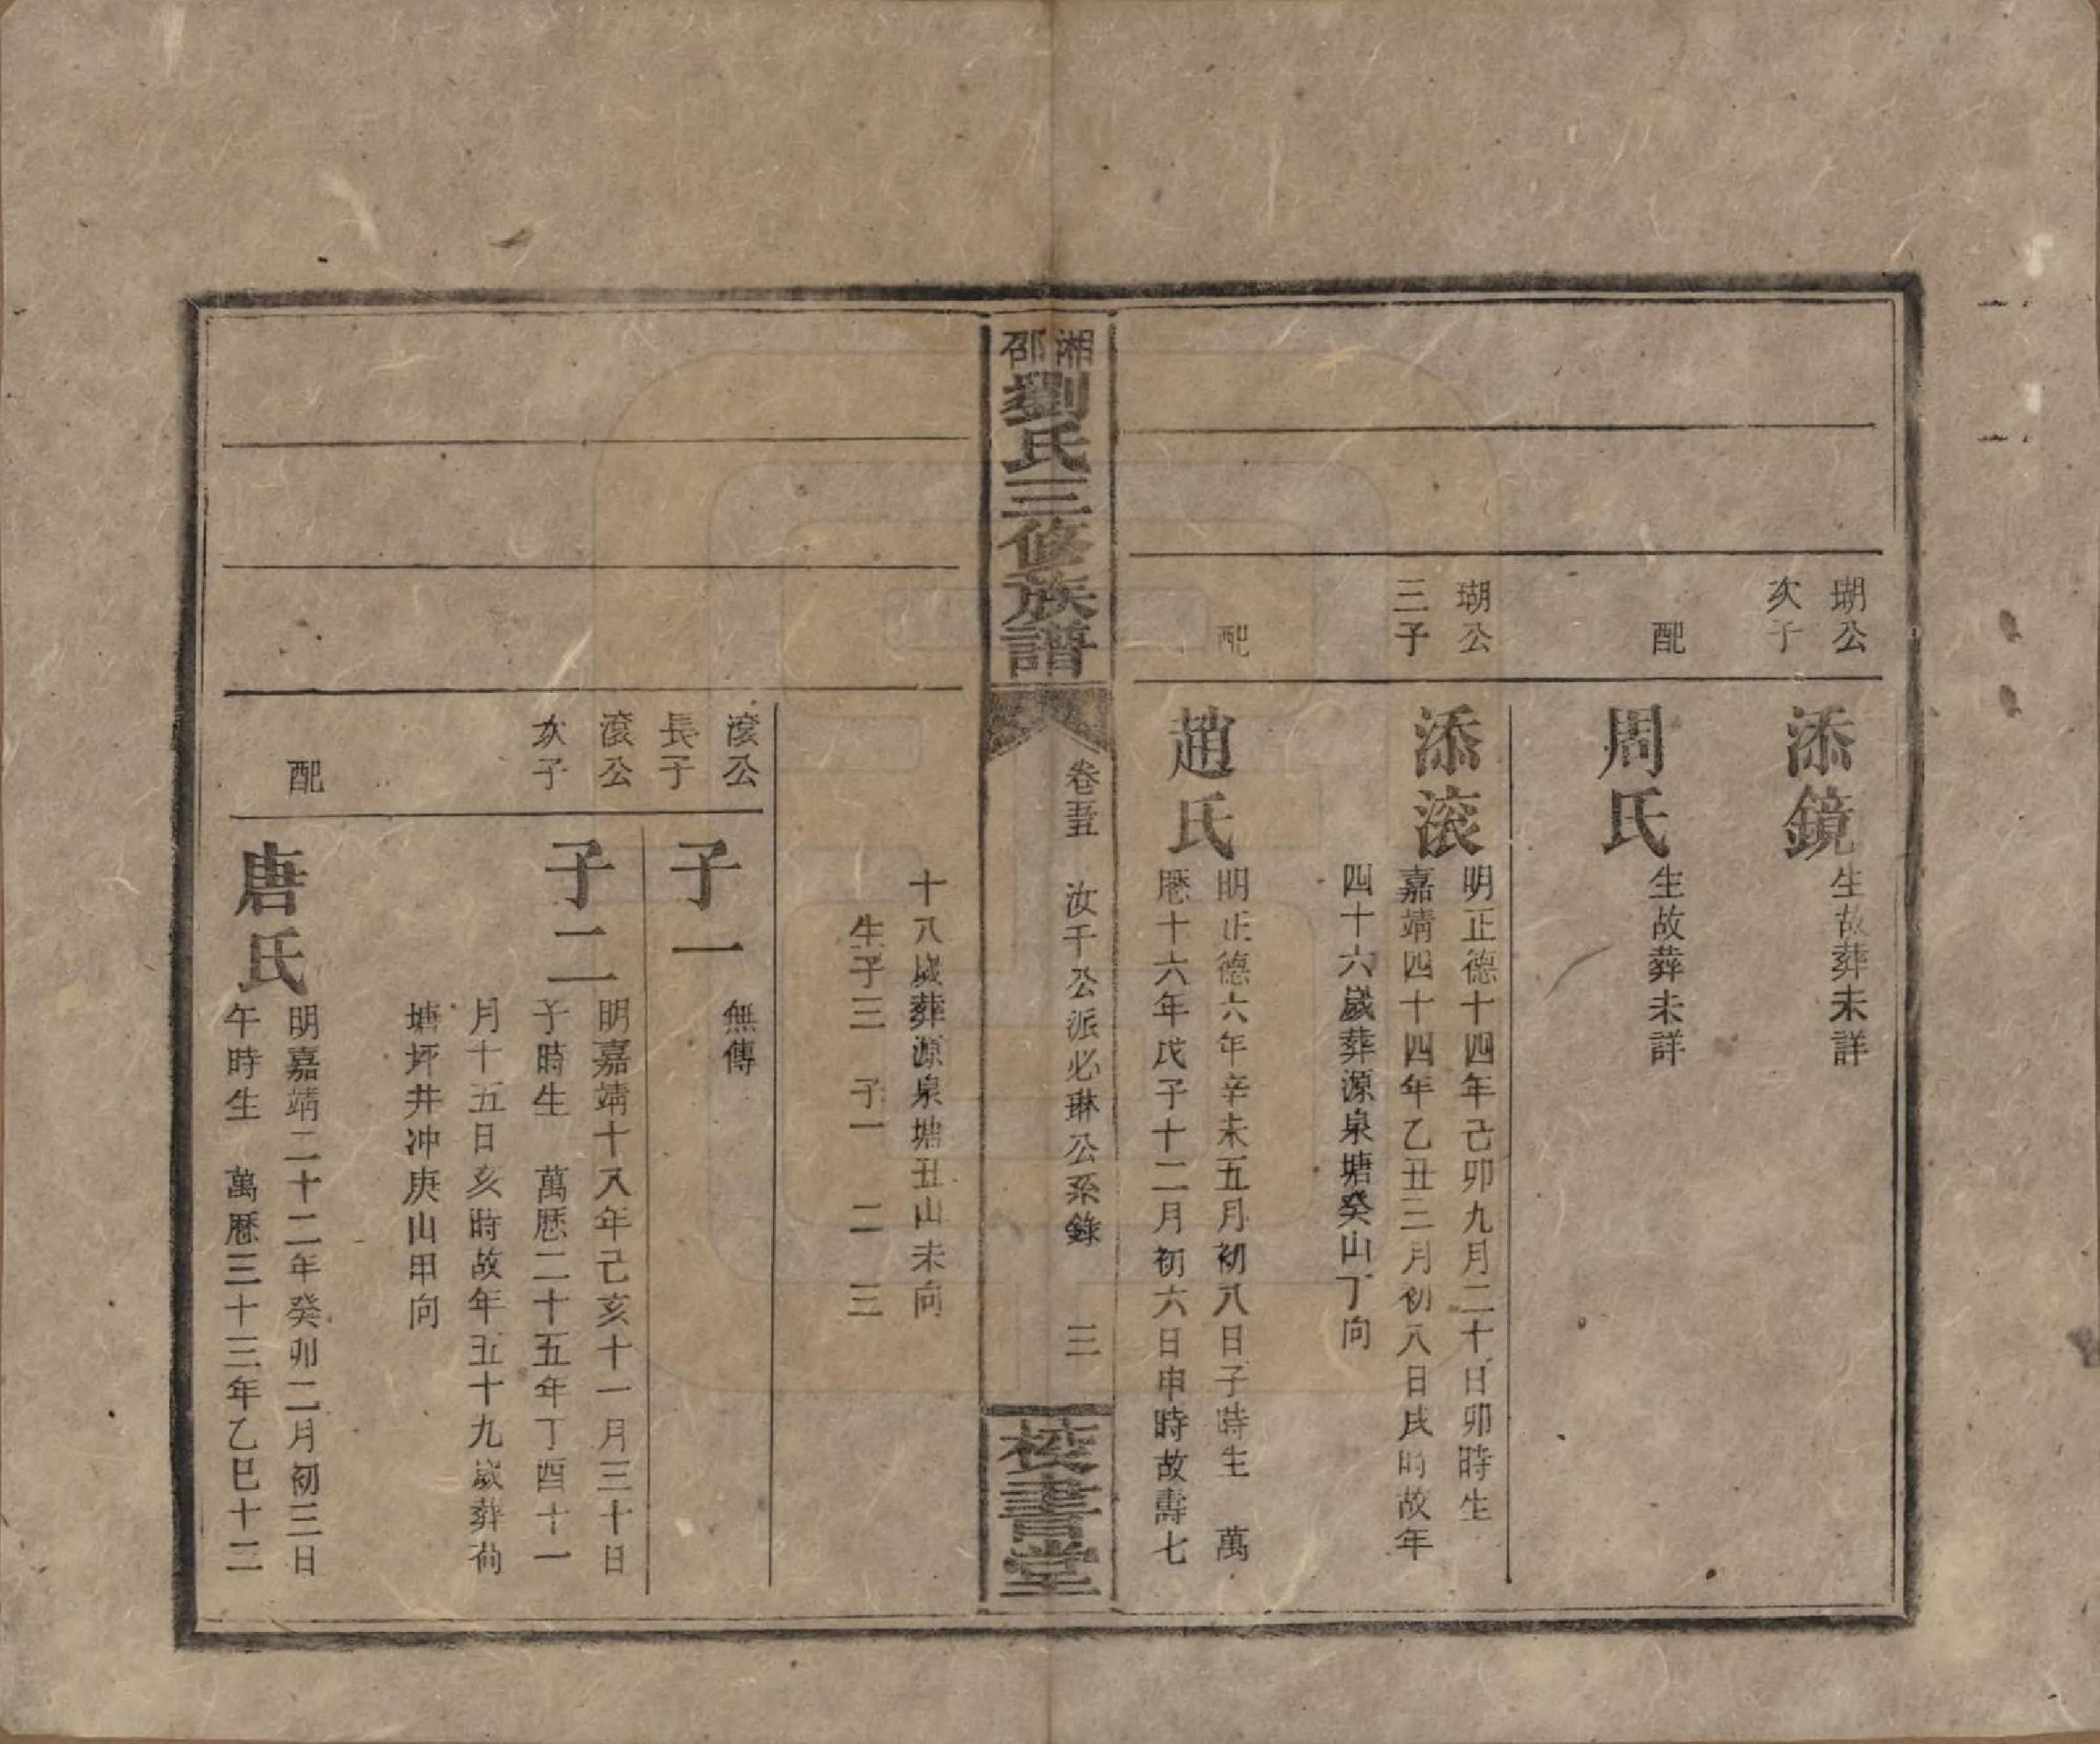 瑚公
次子
添鏡
生故葬未詳
配
周氏
生故葬未詳
瑚公
三子
添滚
明正德十四年己卯九月二十日卯時生
嘉靖四十四年乙丑三月初八日戌時故年
四十六歲葬源泉塘癸山丁向
配
趙氏
明正德六年辛未五月初八日子時生 萬
曆十六年戊子十二月初六日申時故壽七
湘邵劉氏三修族譜
卷五 汝千公派必琳公系錄 三
校書堂
十八歲葬源泉塘丑山未向
生子三 子一 二 三
滚公
長子
子一
無傳
滚公
次子
子二
明嘉靖十八年己亥十一月三十日
子時生 萬曆二十五年丁酉十一
月十五日亥時故年五十九歲葬荷
塘坪井冲庚山甲向
配
唐氏
明嘉靖二十二年癸卯二月初三日
午時生 萬曆三十三年乙巳十二